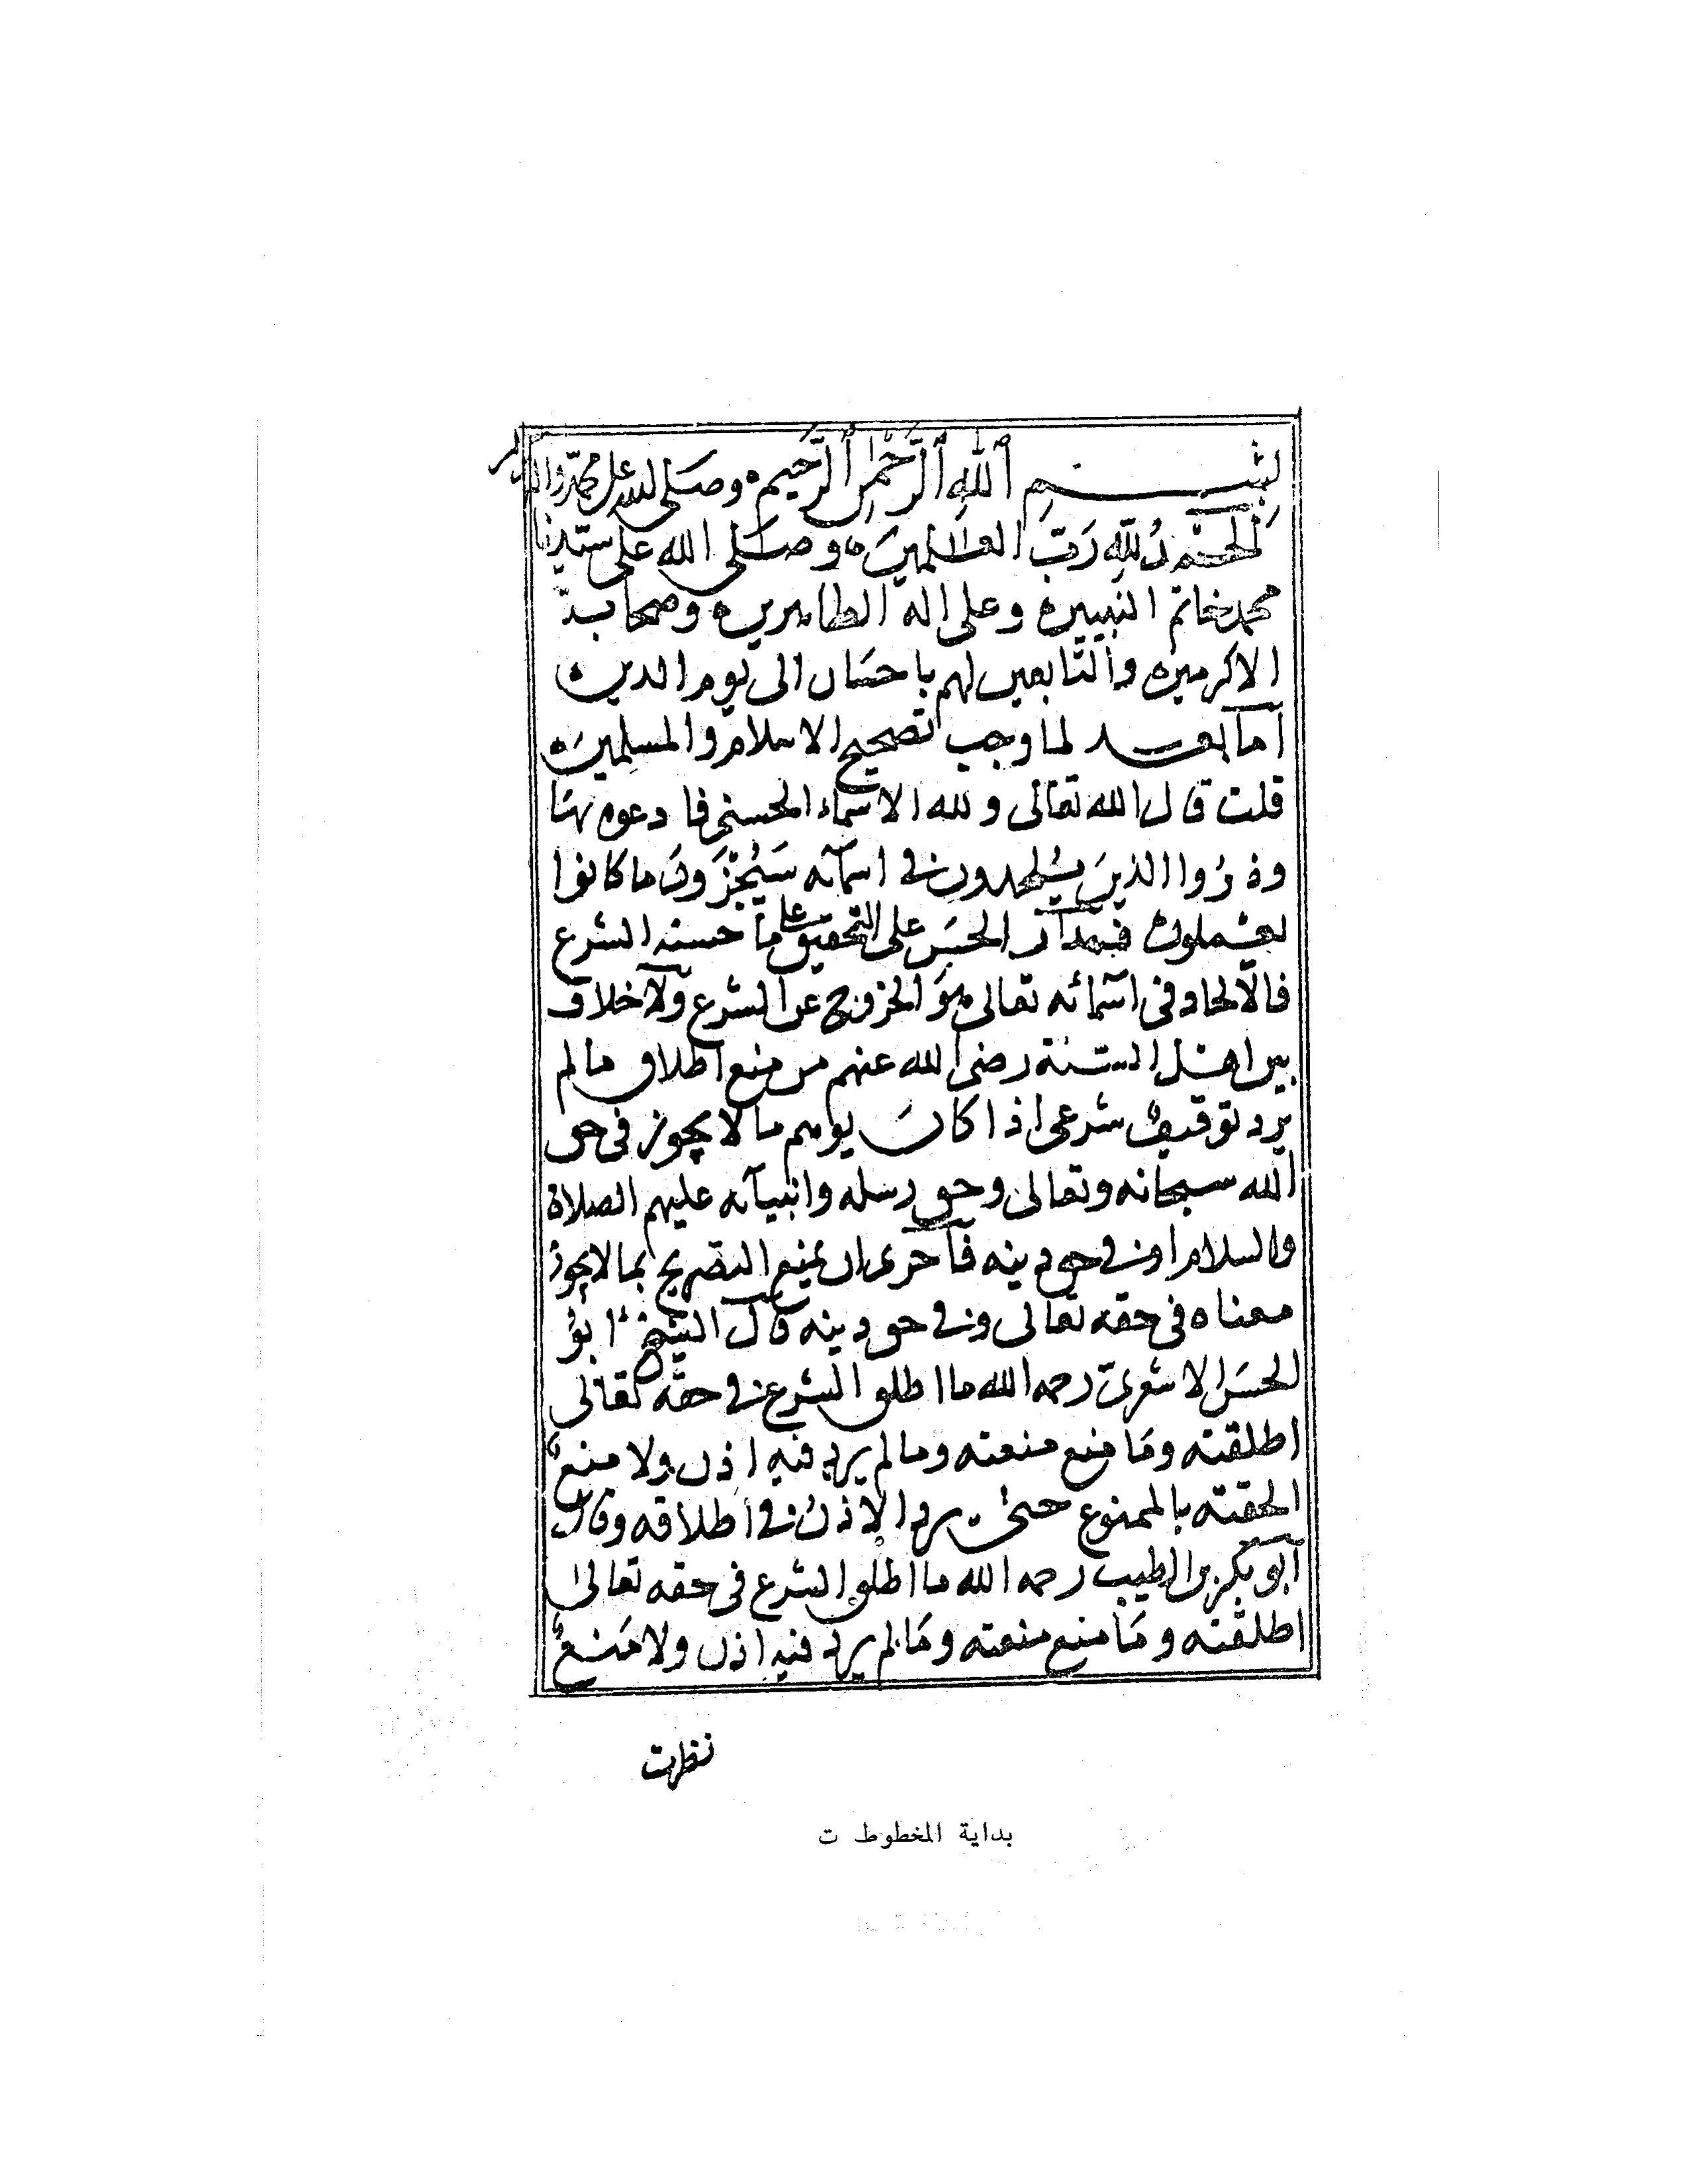 بِسْمِ ٱللَّهِ ٱلرَّحْمٰنِ ٱلرَّحِيمِ وصَلى الله على محمد واله
الحمد لله رَبّ العالمينَ وصلى الله على سيّدنا
محمد خاتم النبيين وعلى اله الطاهرين وصحابته
الاكرمين والتّابعين لهم باحسَان الى يوم الدين
أما بعد لما وجب تصحيح الاسلام والمسلمين
قلت قال الله تعالى ولله الاسماء الحسنى فادعوه بها
وذروا الذين يُلحدون في اسمآئه سَيُجْزَوْنَ ما كانوا
يعملون فمدار الحسن على التحقيق على ما حسنه الشرع
فالالحاد في اسمائه تعالى هوَ الخروج عن الشرع ولا خلاف
بين اهل السّنة رضى الله عنهم من منع اطلاق ما لم
يرد توقيف شرعى اذا كان يوهم ما لا يجوز فى حق
الله سبحانه وتعالى وحق رسله وانبيآئه عليهم الصلاة
والسلام او في حق دينه فآحرى ان يمنع التصريح بما لا يجوز
معناه فى حقه تعالى وفي حق دينه قال الشيخ ابو
الحسن الاشعرىّ رحمه الله ما اطلق الشرع في حقه تعالى
اطلقته ومَا منع منعته وما لم يرد فيه اذن ولا منع
الحقته بالممنوع حتى يرد الاذن في اطلاقه وقال
أبو بكر بن الطيب رحمه الله ما اطلق الشرع فى حقه تعالى
اطلقته ومَا منع منعته ومَا لم يرد فيه اذن ولا مَنع
نظرت
بداية المخطوط ت